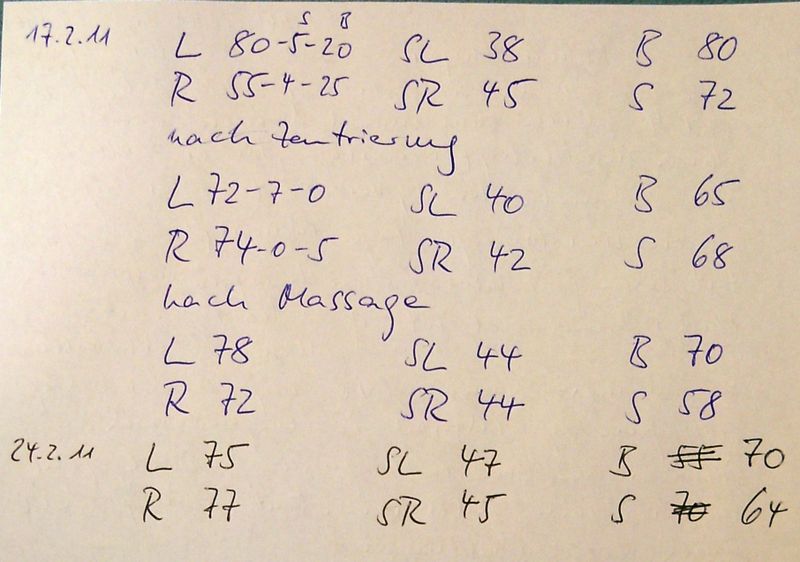 S B
17.2.11 L 80-5-20 SL 38 B 80
R 55-4-25 SR 45 S 72
nach Zentrierung
L 72-7-0 SL 40 B 65
R 74-0-5 SR 42 S 68
nach Massage
L 78 SL 44 B 70
R 72 SR 44 S 58
24.2.11 L 75 SL 47 B 55 70
R 77 SR 45 S 70 64